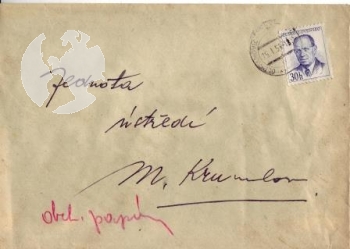 30h
Jednota
ústředí
M. Krumlov
obch. papíry